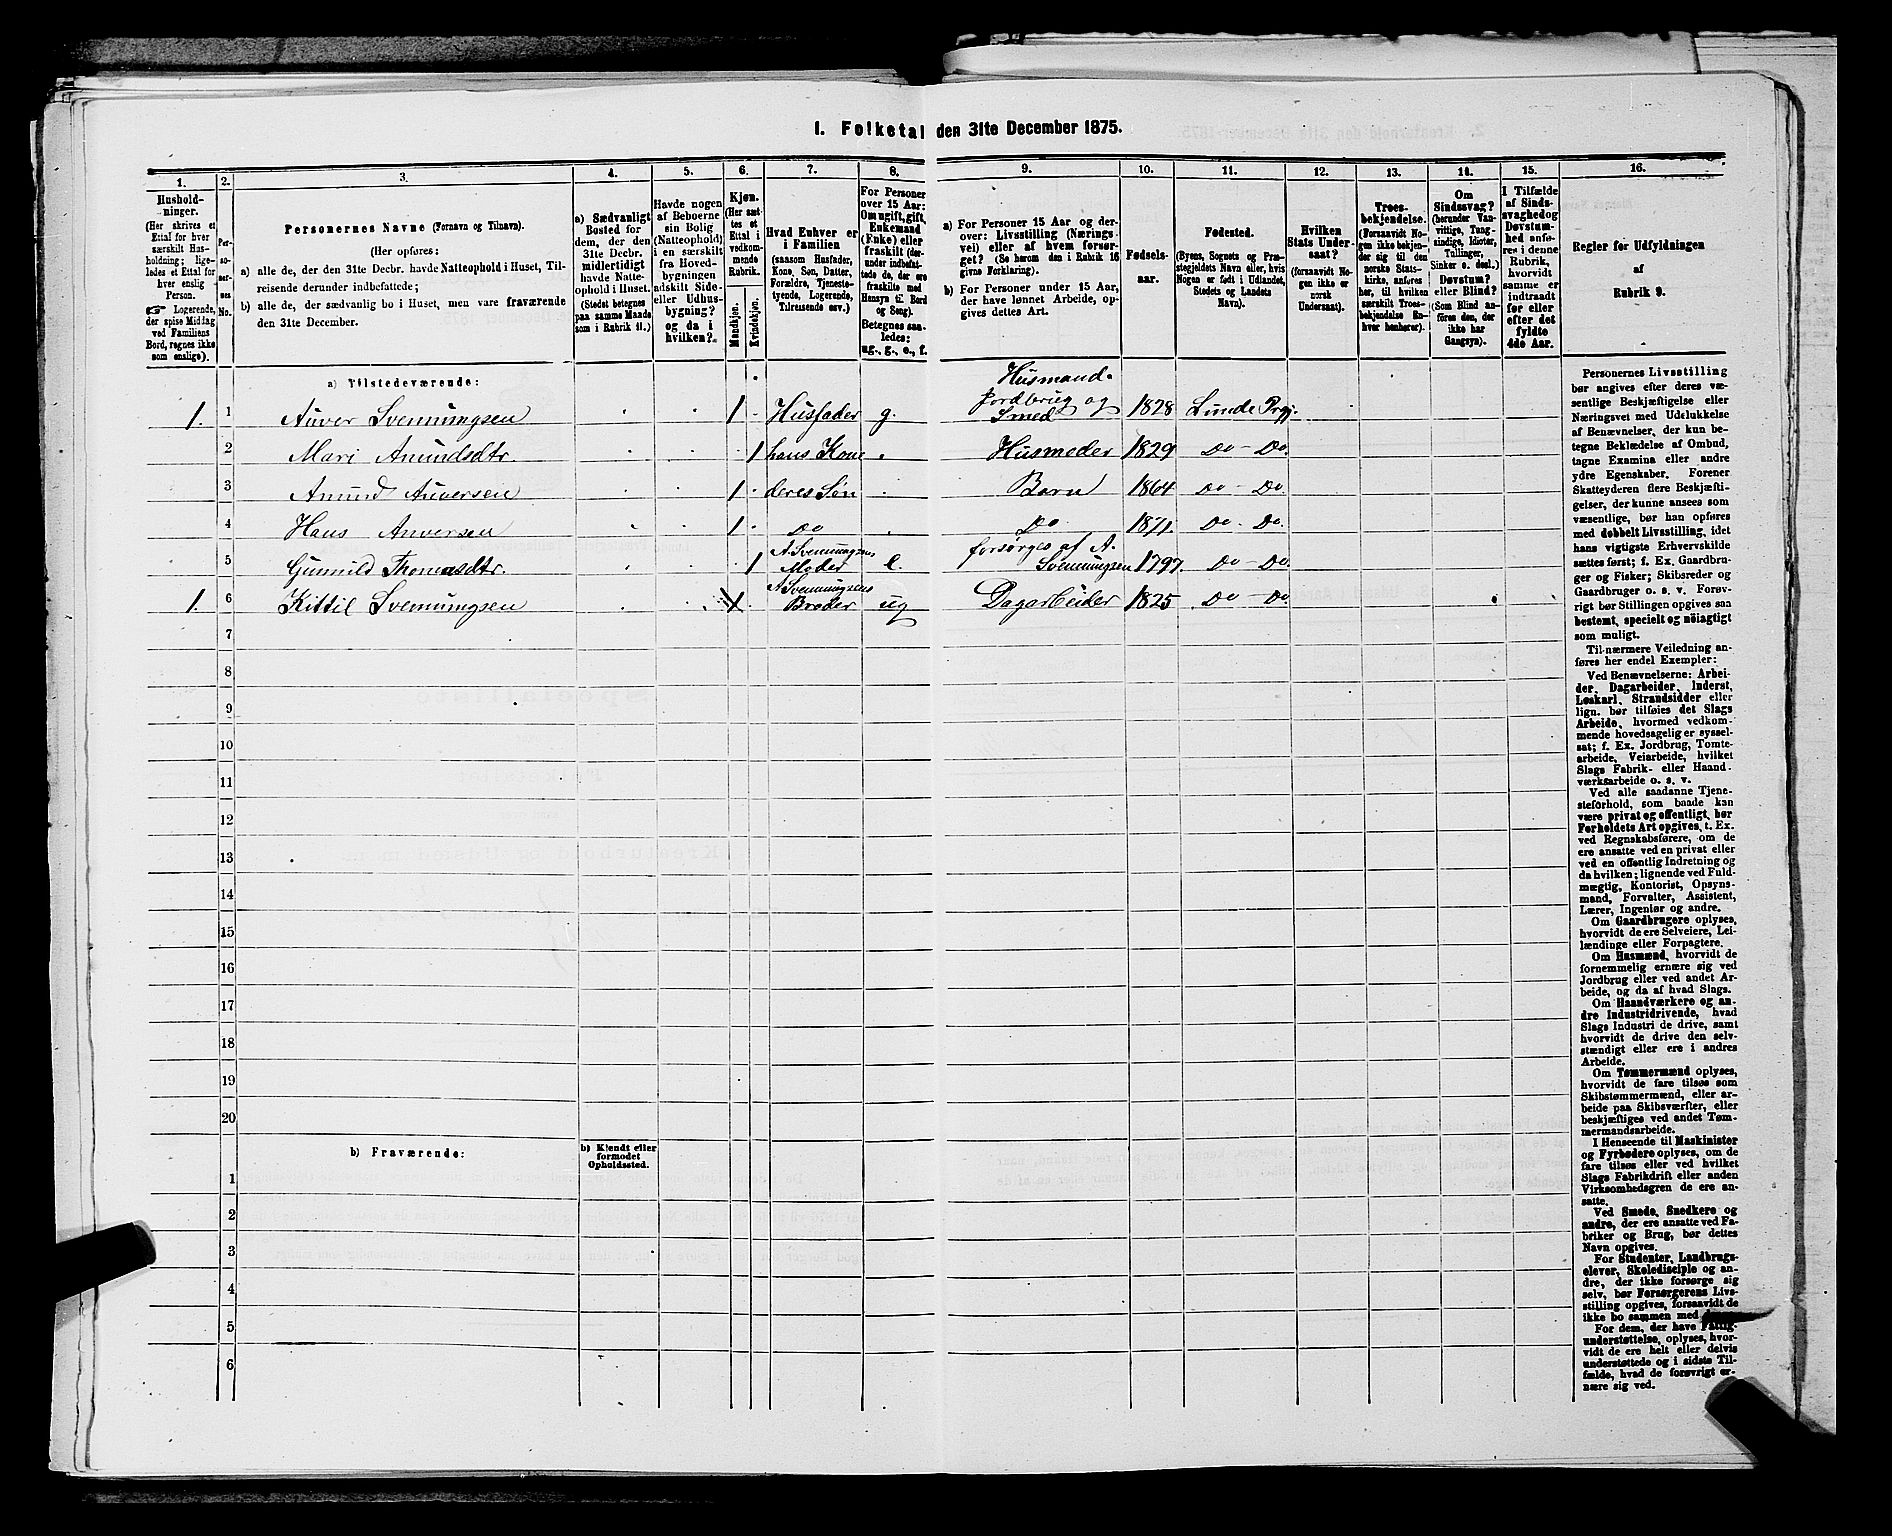 I. Folketal den 31te December 1875.
1.
2.
3.
4.
5.
6.
7.
8.
9.
10.
11.
12.
13.
14.
15.
16.
Hushold-
ninger.
(Her skrives et
Ettal for hver
særskilt Hus-
holdning; lige-
ledes et Ettal for
hver enslig
Person.
☛ Logerende,
der spise Middag
ved Familiens
Bord, regnes ikke
som enslige).
Per-
so-
ner-
nes
No.
Personernes Navne (Fornavn og Tilnavn).
(Her opføres:
a) alle de, der den 31te Decbr. havde Natteophold i Huset, Til-
reisende derunder indbefattede;
b) alle de, der sædvanlig bo i Huset, men vare fraværende
den 31te December.
a) Sædvanligt
Bosted for
dem, der den
31te Decbr.
midlertidigt
havde Natte-
ophold i Huset.
(Stedet betegnes
paa samme Maade
som i Rubrik 11.)
Havde nogen
af Beboerne
sin Bolig
(Natteophold)
i en særskilt
fra Hoved-
bygningen
adskilt Side-
eller Udhus-
bygning?
og da i
hvilken?
Kjøn.
(Her sæt-
tes et
Ettal i
vedkom-
mende
Rubrik.
Mandkjøn.
Kvindekjøn.
Hvad Enhver er
i Familien
(saasom Husfader,
Kone, Søn, Datter,
Forældre, Tjeneste-
tyende, Logerende,
Tilreisende osv.)
For Personer
over 15 Aar:
Om ugift, gift,
Enkemand
(Enke) eller
fraskilt (der-
under indbefat-
tede de, der ere
fraskilte med
Hensyn til Bord
og Seng).
Betegnes saa-
ledes:
ug., g., e., f.
a) For Personer 15 Aar og der-
over: Livsstilling (Nærings-
vei) eller af hvem forsør-
get? (Se herom den i Rubrik 16
givne Forklaring).
b) For Personer under 15 Aar,
der have lønnet Arbeide, op-
gives dettes Art.
Fødsels-
aar.
Fødested.
(Byens, Sognets og Præ-
stegjeldets Navn eller, hvis
Nogen er født i Udlandet,
Stedets og Landets
Navn).
Hvilken
Stats Under-
saat?
(forsaavidt No-
gen ikke er
norsk
Undersaat).
Troes-
bekjendelse.
(Forsaavidt No-
gen ikke bekjen-
der sig til den
norske Stats-
kirke, anføres
her, til hvilken
særskilt Troes-
bekjendelse En-
hver henhører).
Om
Sindssvag?
(herunder Van-
vittige, Tung-
sindige, Idioter,
Tullinger,
Sinker o. desl.)
Døvstum?
eller Blind?
(Som Blind an-
føres den, der
ikke har
Gangsyn).
I Tilfælde
af Sinds-
svaghed og
Døvstum-
hed anfø-
res i denne
Rubrik,
hvorvidt
samme er
indtraadt
før eller
efter det
fyldte
4de Aar.
Regler for Udfyldningen
af
Rubrik 9.
a) Tilstedeværende:
1. 1 Anver Svennungsen 1 Husfader g. Husmand. Jordbrug og Smed 1828 Lunde Prgj.
2 Mari Amundsdtr. 1 hans Kone Husmoder 1829 Do – Do.
3 Amund Anversen 1 deres Søn Barn 1864 Do – Do.
4 Hans Anversen 1 Do Do 1871. Do. Do.
5 Gunnild Thomasdtr. 1 A. Svennungsens Moder e. forsørges af A. Svennungsen 1797. Do – Do.
1. 6 Kittil Svennungsen 1 A. Svennungsens Broder ug Dagarbeider 1825 Do – Do
7
8
9
10
11
12
13
14
15
16
17
18
19
20
b) Fraværende:
b) Kjendt eller
formodet
Opholdssted.
1
2
3
4
5
6
Personernes Livsstilling
bør angives efter deres væ-
sentlige Beskjæftigelse eller
Næringsvei med Udelukkelse
af Benævnelser, der kun be-
tegne Beklædelse af Ombud,
tagne Examina eller andre
ydre Egenskaber. Forener
Skatteyderen flere Beskjæfti-
gelser, der kunne ansees som
væsentlige, bør han opføres
med dobbelt Livsstilling, idet
hans vigtigste Erhvervskilde
sættes først; f. Ex. Gaardbru-
ger og Fisker; Skibsreder og
Gaardbruger o. s. v. Forøv-
rigt bør Stillingen opgives saa
bestemt, specielt og nøiagtigt
som muligt.
Til nærmere Veiledning an-
føres her endel Exempler:
Ved Benævnelserne: Arbei-
der, Dagarbeider, Inderst,
Løskarl, Strandsidder eller
lign. bør tilføies det Slags
Arbeide, hvormed vedkom-
mende hovedsagelig er syssel-
sat; f. Ex. Jordbrug, Tomte-
arbeide, Veiarbeide, hvilket
Slags Fabrik- eller Haand-
værksarbeide o. s. v.
Ved alle saadanne Tjene-
steforhold, som baade kan
være privat og offentligt, bør
Forholdets Art opgives, t. Ex.
ved Regnskabsførere, om de
ere ansatte ved en privat eller
ved en offentlig Indretning og
da hvilken; lignende ved Fuld-
mægtig, Kontorist, Opsyns-
mand, Forvalter, Assistent,
Lærer, Ingeniør og andre.
Om Gaardbrugere oplyses,
hvorvidt de ere Selveiere, Lei-
lændinge eller Forpagtere.
Om Husmænd, hvorvidt de
fornemmelig ernære sig ved
Jordbrug eller ved andet Ar-
beide, og da af hvad Slags.
Om Haandværkere og an-
dre Industridrivende, hvad
Slags Industri de drive, samt
hvorvidt de drive den selv-
stændigt eller ere i andres
Arbeide.
Om Tømmermænd oplyses,
hvorvidt de fare tilsøs som
Skibstømmermænd, eller ar-
beide paa Skibsværfter, eller
beskjæftiges ved andet Tøm-
mermandsarbeide.
I Henseende til Maskinister
og Fyrbødere oplyses, om de
fare tilsøs eller ved hvilket
Slags Fabrikdrift eller anden
Virksomhedsgren de ere an-
satte.
Ved Smede, Snedkere og
andre, der ere ansatte ved Fa-
briker og Brug, bør dettes
Navn opgives.
For Studenter, Landbrugs-
elever, Skoledisciple og an-
dre, der ikke forsørge sig
selv, bør Forsørgerens Livs-
stilling opgives, forsaavidt de
ikke bo sammen med
For dem, der have Fattig-
understøttelse, oplyses, hvor-
vidt de ere helt eller delvis
understøttede og i sidste Til-
fælde, hvad de forøvrigt er-
nære sig ved.